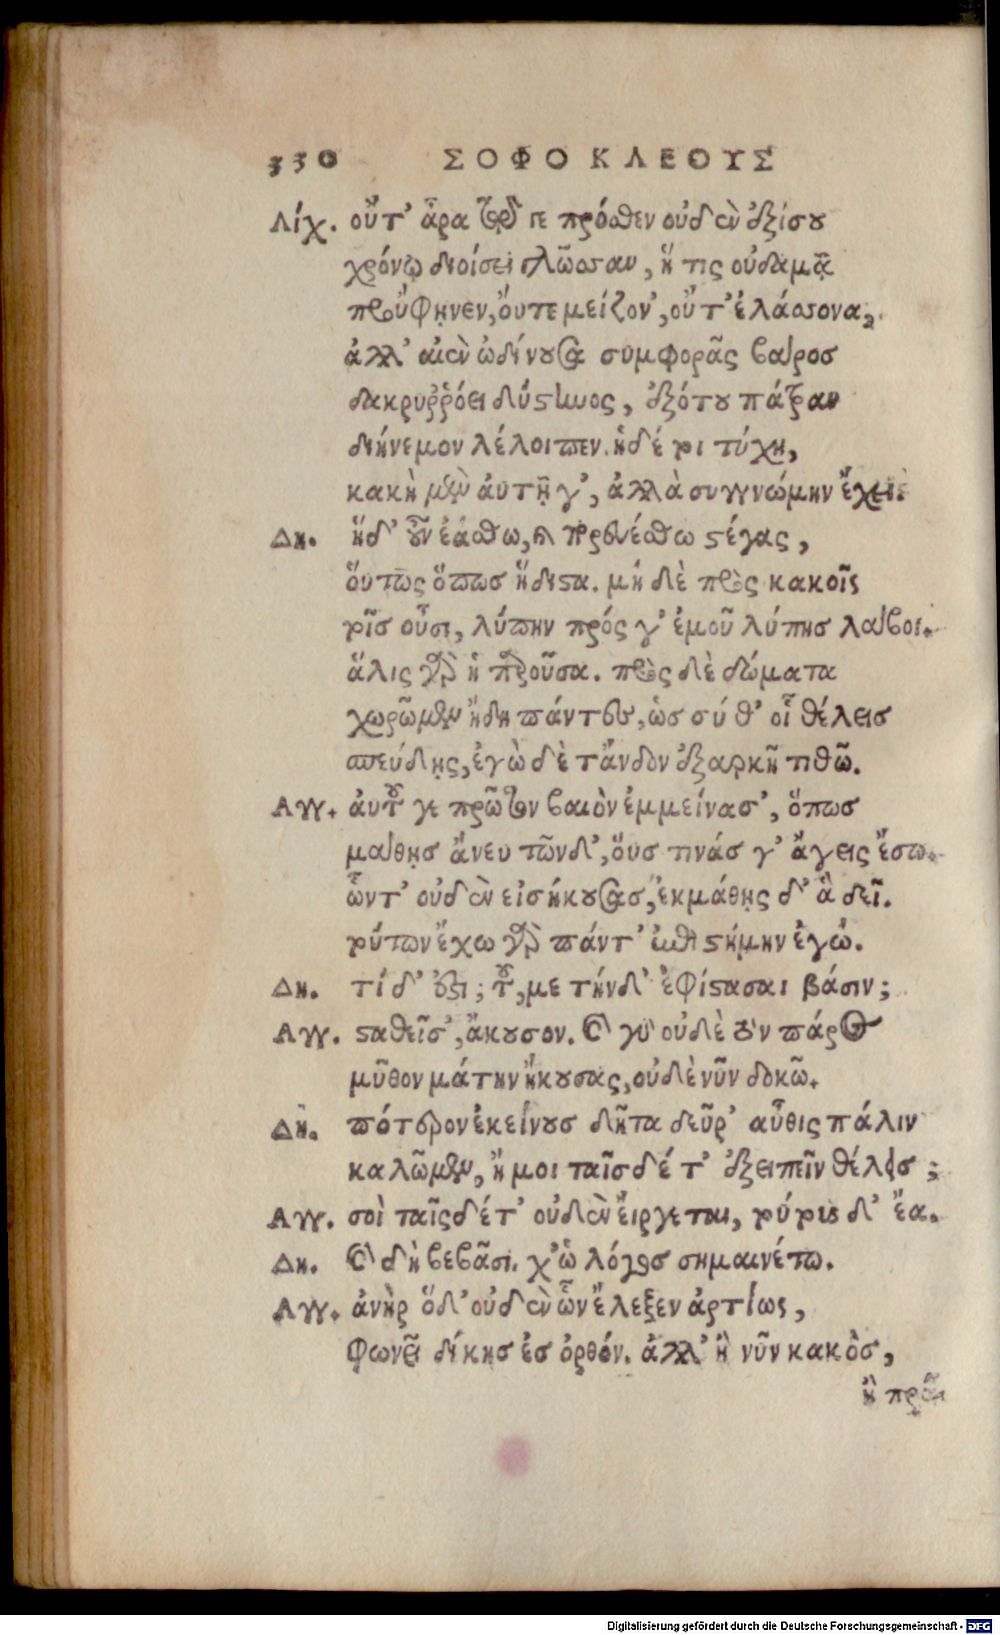 330 ΣΟΦΟΚΛΕΟΥΣ
Λίχ. οὔτ' ἄρα τῷ γε πρόσθεν οὐδὲν ἐξίσου
χρόνῳ διοίσει γλῶσσαν, ἥ τις οὐδαμᾷ
προὔφηνεν, ὄυτε μείζον', οὔτ' ἐλάσσονα,
ἀλλ' αἰὲν ὠδίνουσα συμφορᾶς βάρος
δακρυῤῥόει δύστηνος, ἐξότου πάτραν
διήνεμον λέλοιπεν. ἡ δέ τοι τύχη,
κακὴ μὲν ἀυτῇ γ', ἀλλὰ συγγνώμην ἔχει.
Δη. ἥδ' οὖν ἐάσθω, καὶ πορευέσθω στέγας,
ὅυτως ὅπως ἥδιστα. μή δὲ πρὸς κακοῖς
τοῖς οὖσι, λύπην πρός γ' ἐμοῦ λύπης λάβοι.
ἅλις γὰρ ἡ παροῦσα. πρὸς δὲ δώματα
χωρῶμεν ἤδη πάντες, ὡς σύ θ' οἷ θέλεις
σπεύδῃς, ἐγὼ δὲ τἄνδον ἐξαρκῆ τιθῶ.
Αγγ. ἀυτοῦ γε πρῶτον βαιὸν ἐμμείνασ', ὅπως
μάθῃς ἄνευ τῶνδ', ὅυς τινάς γ' ἄγεις ἔσω.
ὧν τ' οὐδὲν εἰσήκουσας, ἐκμάθῃς δ' ἃ δεῖ.
τούτων ἔχω γὰρ πάντ' ἐπιστήμην ἐγώ.
Δη. τί δ' ἐστι; τοῦ, με τήνδ' ἐφίστασαι βάσιν;
Αγγ. σταθεῖσ', ἄκουσον. καὶ γὰρ οὐδὲ τὸν πάρος
μῦθον μάτην ἤκουσας, οὐδὲ νῦν δοκῶ.
Δη. πότερον ἐκείνους δῆτα δεῦρ' αὖθις πάλιν
καλῶμεν, ἤ μοι ταῖς δέ τ' ἐξειπεῖν θέλεις;
Αγγ. σοὶ ταῖς δέ τ' οὐδὲν ἔιργεται, τούτους δ' ἔα.
Δη. καὶ δὴ βεβᾶσι. χ' ὡ λόγος σημαινέτω.
Αγγ. ἀνὴρ ὅδ' οὐδὲν ὧν ἔλεξεν ἀρτίως,
φωνεῖ δίκης ἐς ὀρθόν. ἀλλ' ἢ νῦν κακὸς,
ἢ πρό-
Digitalisierung gefördert durch die Deutsche Forschungsgemeinschaft - DFG